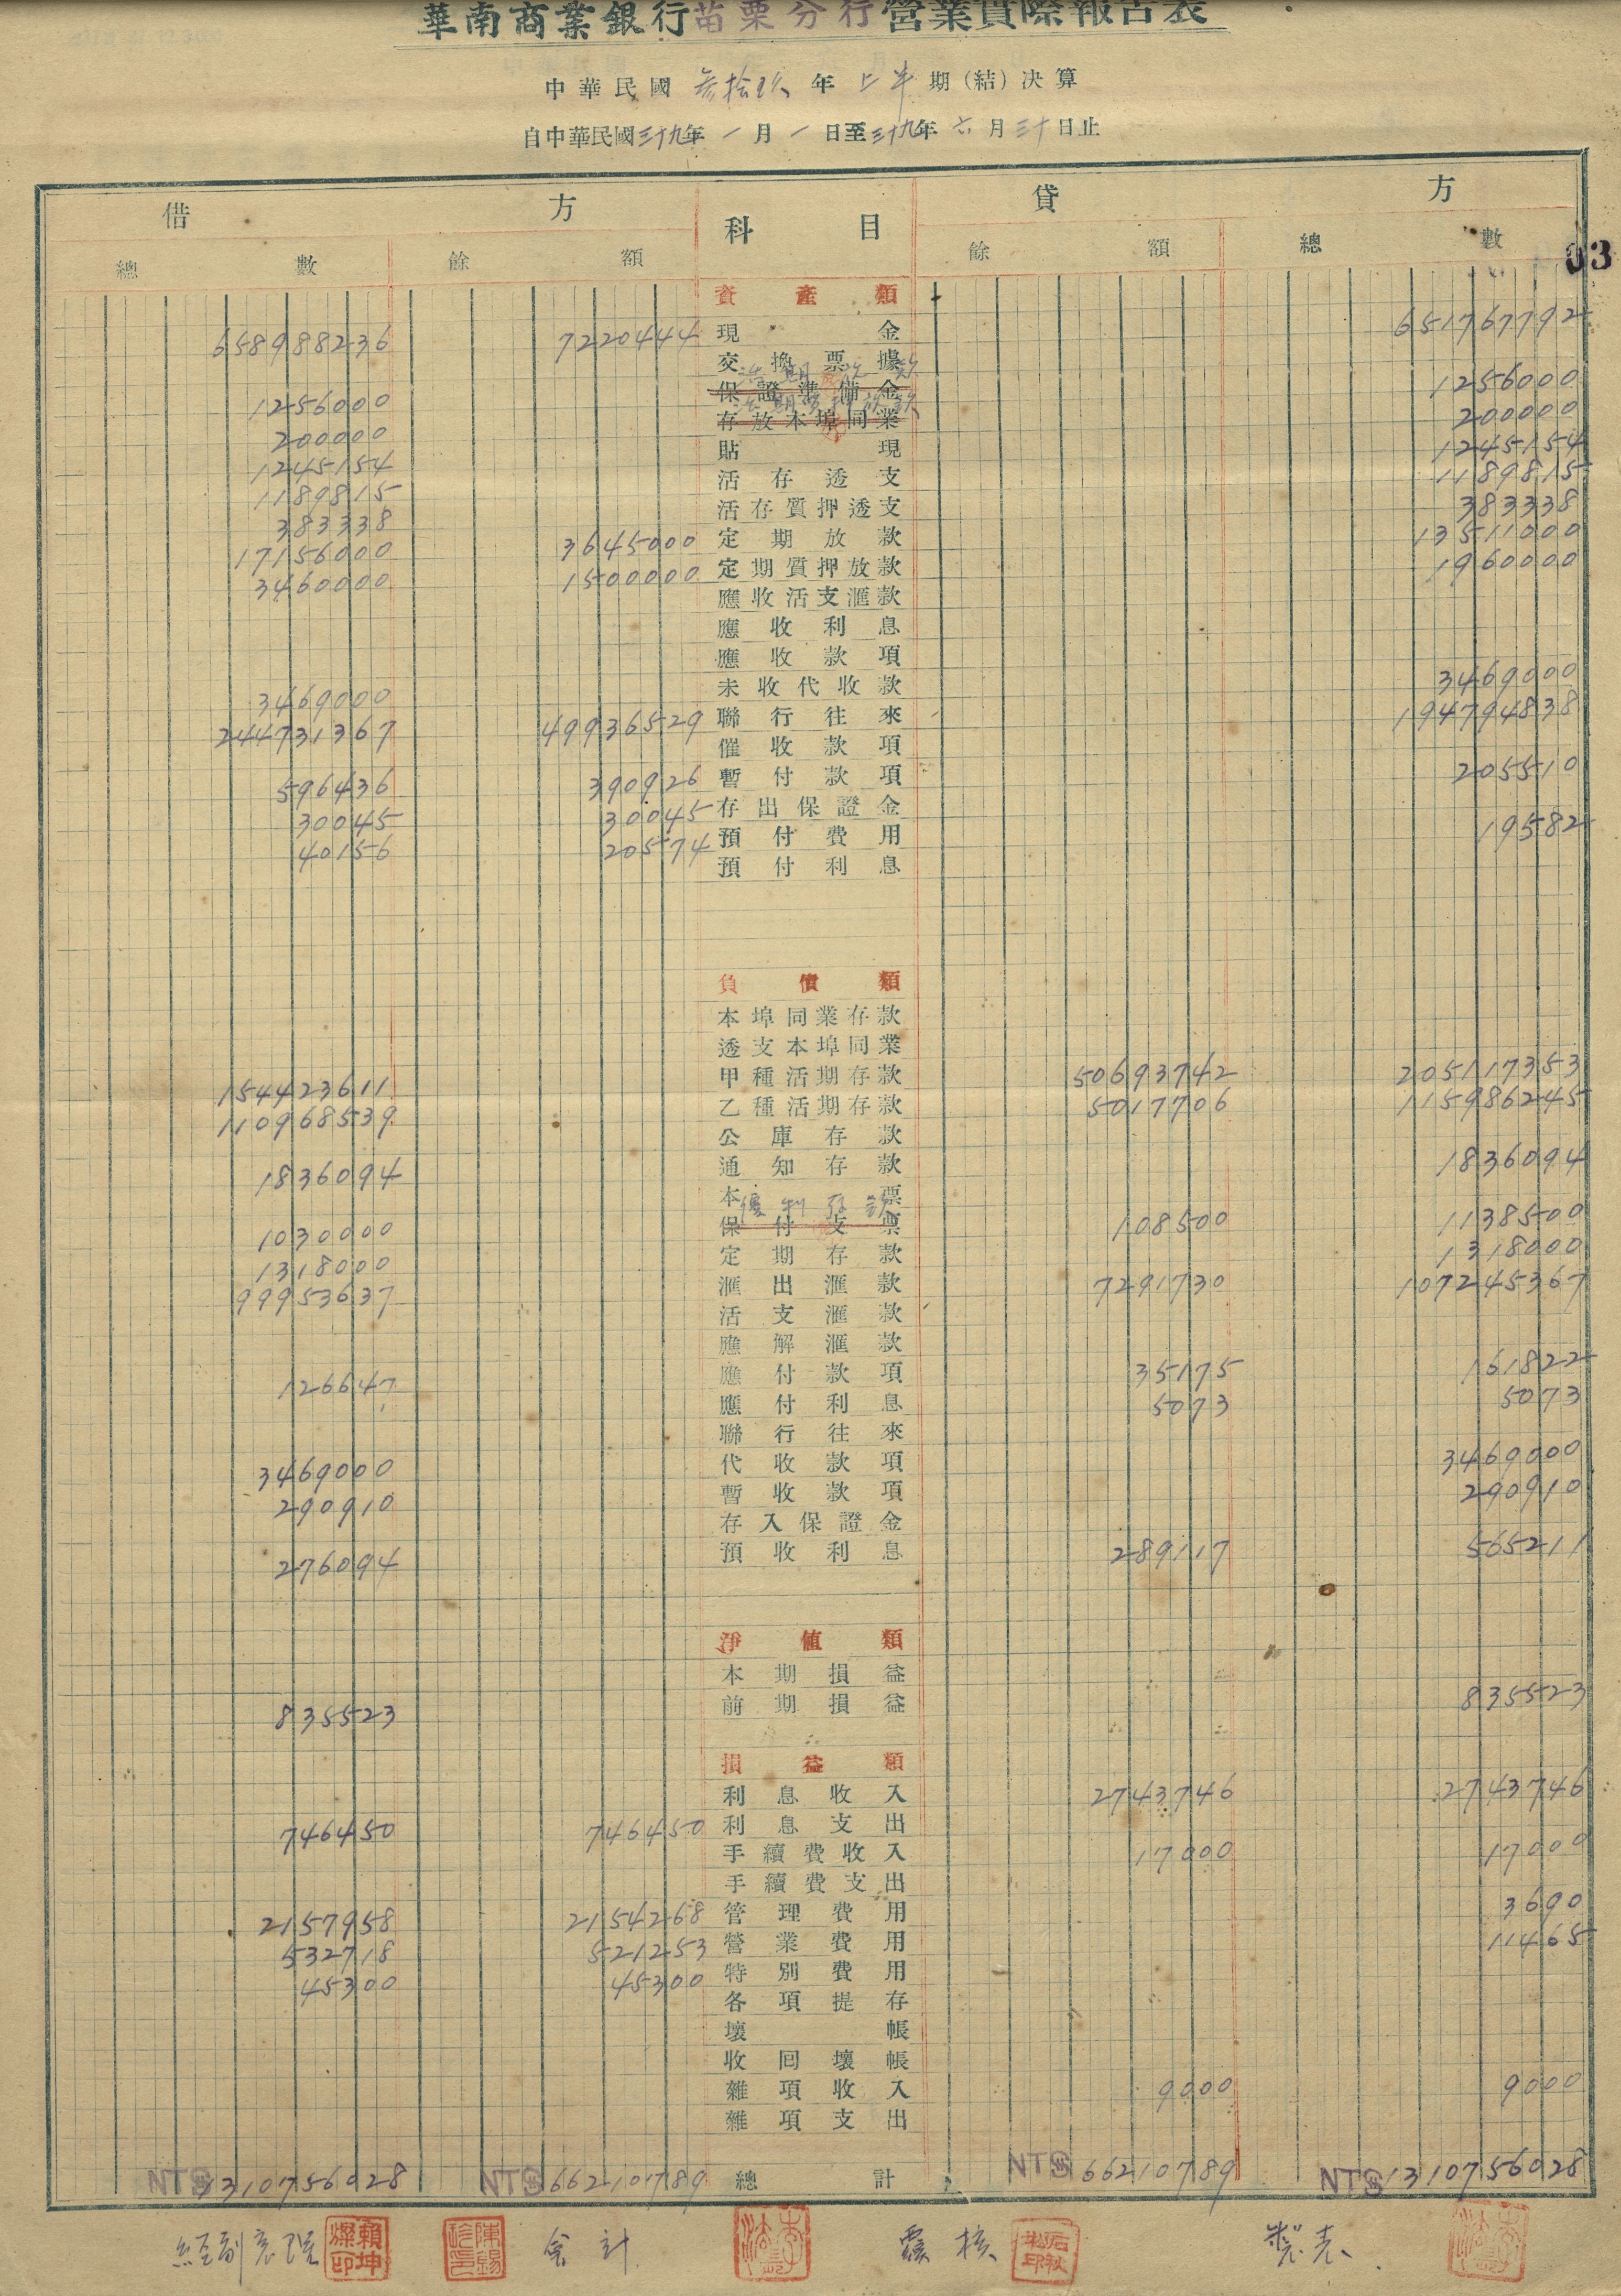 華南商業銀行苗栗分行營業實際報告表
中華民國 叁拾玖 年 上半 期(結)決算
自中華民國三十九年 一 月 一 日至三十九年 六 月 三十 日止
借 方 科 目 貸 方
總 數 餘 額 餘 額 總 數
03
資產類
658988236 7220444 現金 651767792
交換票據
活期放款
1256000 保證準備金 1256000
活期質押放款
200000 存放本埠同業 200000
1245154 貼現 1245154
1189815 活存透支 1189815
383338 活存質押透支 383338
17156000 3645000 定期放款 13511000
3460000 1500000 定期質押放款 1960000
應收活支滙款
應收利息
應收款項
3469000 未收代收款 3469000
244731367 49936529 聯行往來 194794838
催收款項
596436 390926 暫付款項 205510
30045 30045 存出保證金
40156 20574 預付費用 19582
預付利息
負債類
本埠同業存款
透支本埠同業
154423611 甲種活期存款 50693742 205117353
110968539 乙種活期存款 5017706 115986245
公庫存款
1836094 通知存款 1836094
本票
優利存款
1030000 保付支票 108500 1138500
1318000 定期存款 1318000
99953637 滙出滙款 7291730 107245367
活支滙款
應解滙款
126647 應付款項 35175 161822
應付利息 5073 5073
聯行往來
3469000 代收款項 3469000
290910 暫收款項 290910
存入保證金
276094 預收利息 289117 565211
淨值類
本期損益
835523 前期損益 835523
損益類
利息收入 2743746 2743746
746450 746450 利息支出
手續費收入 17000 17000
手續費支出
2157958 2154268 管理費用 3690
532718 521253 營業費用 11465
45300 45300 特別費用
各項提存
壞帳
收回壞帳
雜項收入 9000 9000
雜項支出
NT$1310756028 NT$66210789 總計 NT$66210789 NT$1310756028
經副襄理 賴坤燦印 陳錫珍印 會計 覆核 製表